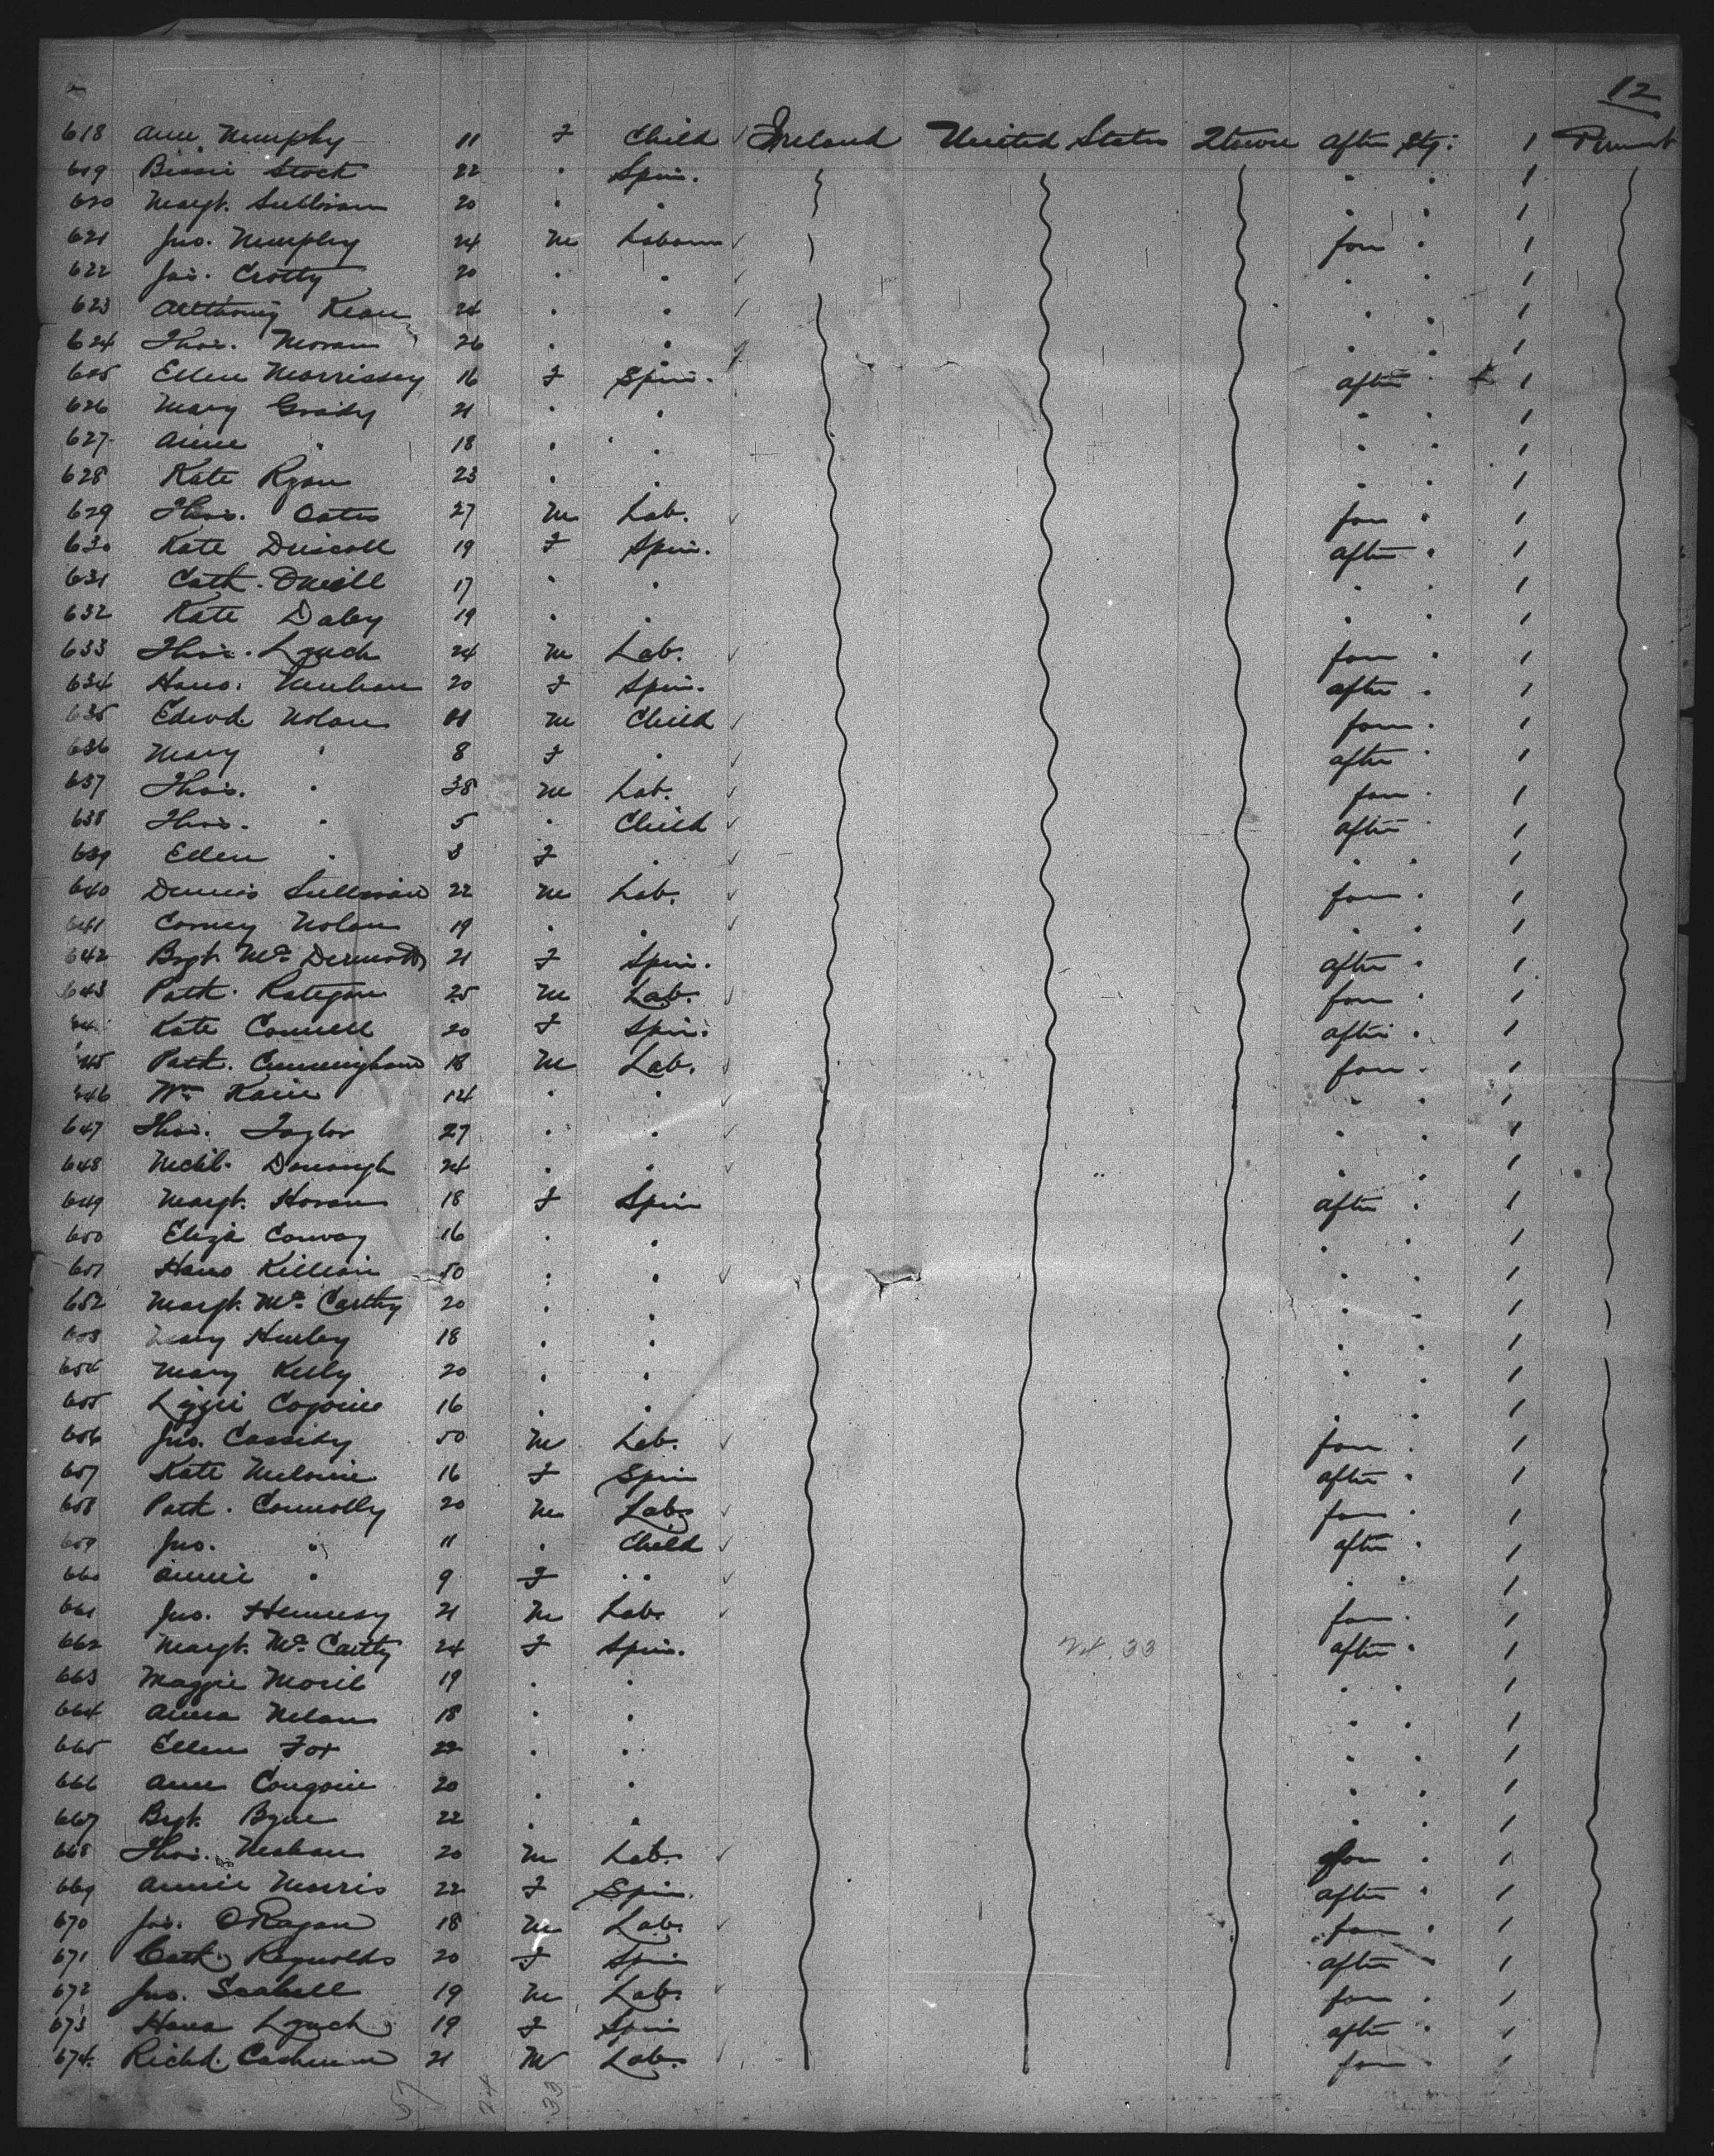 12
618 Ann Murphy 11 F Child Ireland United States Qtown After Stg: 1 Permnt
619 Bessie Stack 22 " Spin. " " 1
620 Margt. Sullivan 20 " " " " 1
621 Jno. Murphy 24 M Laborer for " 1
622 Jas. Crotty 20 " " " " 1
623 Anthony Kean 24 " " " " 1
624 Thos. Moran 26 " " " " 1
625 Ellen Morrissey 16 F Spin. after " 1
626 Mary Grady 21 " " " " 1
627 Anne " 18 " " " " 1
628 Kate Ryan 23 " " " " 1
629 Thos. Oates 27 M Lab. for " 1
630 Kate Driscoll 19 F Spin. after " 1
631 Cath. 17 " " " " 1
632 Kate Daley 19 " " " " 1
633 Thos. Lynch 24 M Lab. for " 1
634 Hano. 20 F Spin. after " 1
635 Edwd Nolan 11 M Child for " 1
636 Mary " 8 F " after " 1
637 Thos. " 38 M Lab. for " 1
638 Thos. " 5 " Child after " 1
639 Ellen " 3 F " " " 1
640 Dennis Sullivan 22 M Lab. for " 1
641 Corney Nolan 19 " " " " 1
642 Bigt. McDermott 21 F Spin. after " 1
643 Patk. Rategan 25 M Lab. for " 1
644 Kate Connell 20 F Spin. after " 1
645 Patk. Cunningham 18 M Lab. for " 1
646 Wm 14 " " " " 1
647 Thos. Taylor 27 " " " " 1
648 Michl. Donough 24 " " " " 1
649 Margt. Horan 18 F Spin after " 1
650 Eliza Conway 16 " " " " 1
651 Hano Killian 50 " " " " 1
652 Margt. McCarthy 20 " " " " 1
653 Mary Hurley 18 " " " " 1
654 Mary Kelly 20 " " " " 1
655 Lizzie 16 " " " " 1
656 Jno. Cassidy 50 M Lab. for " 1
657 Kate 16 F Spin after " 1
658 Patk. Connolly 20 M Lab. for " 1
659 Jno. " 11 " Child after " 1
660 Annie " 9 F " " " 1
661 Jno. Hennesy 21 M Lab. for " 1
662 Margt. McCartty 24 F Spin. 24.33 after " 1
663 Maggie 19 " " " " 1
664 Anna 18 " " " " 1
665 Ellen Fox 22 " " " " 1
666 Ann 20 " " " " 1
667 Bigt. Byne 22 " " " " 1
668 Thos. Meehan 20 M Lab. for " 1
669 Annie Morris 22 F Spin. after " 1
670 Jas. O'Ragan 18 M Lab. for " 1
671 Cath. Reynolds 20 F Spin after " 1
672 Jno. 19 M Lab. for " 1
673 Hana Lynch 19 F Spin after " 1
674. Richd. 21 M Lab. for " 1
57 24 33